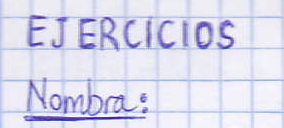 EJERCICIOS
Nombra: